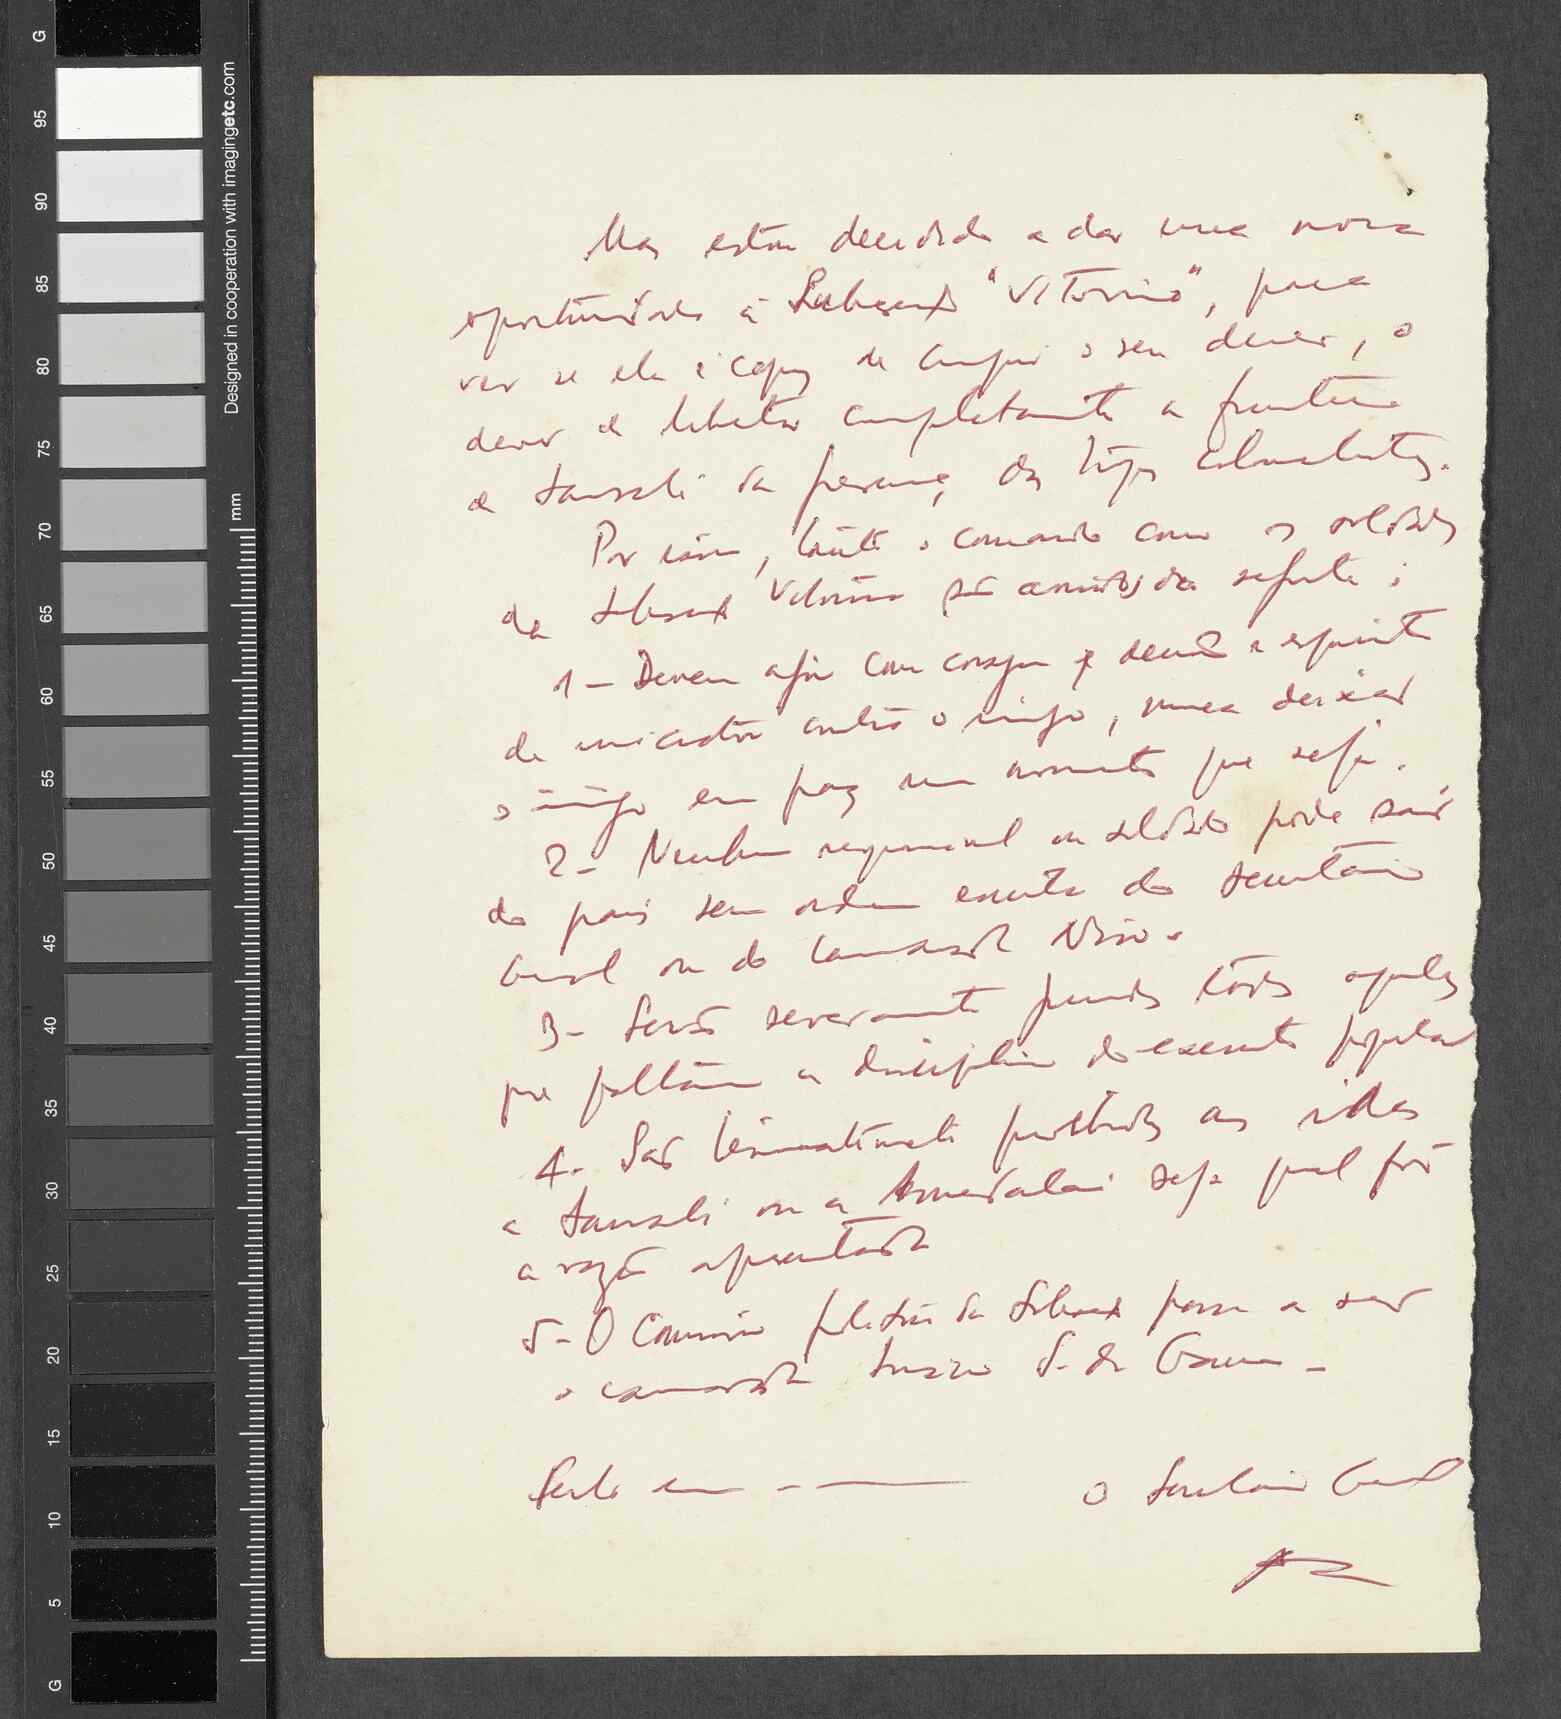 G
95
90
85
80
75
70
65
60
55
50
45
40
35
30
25
20
15
10
5
G
Designed in cooperation with imagingetc.com
mm
Mas estou decidido a dar uma nova
oportunidade à "Vitorino", para
ver se ela é capaz de cumprir o seu dever, o
dever de libertar completamente a fronteira
de Sansalé da presença dos tugas colonialistas.
Por isso, tanto o comando como os soldados
da Vitorino são do seguinte:
1- Devem agir com coragem e decisão e espírito
de iniciativa contra o inimigo, nunca deixar
o inimigo em paz um momento que seja.
2- Nenhum responsável ou soldado pode sair
do país sem ordem escrita do Secretário
Geral ou do camarada Nino.
3- Serão severamente punidos todos aqueles
que faltarem a disciplina do exército popular
4- São terminantemente proibidas as idas
a Sansalé ou a seja qual fôr
a razão apresentada
5- O Comissário político da passa a ser
o camarada S. da Gama -
Feito em - O Secretário Geral